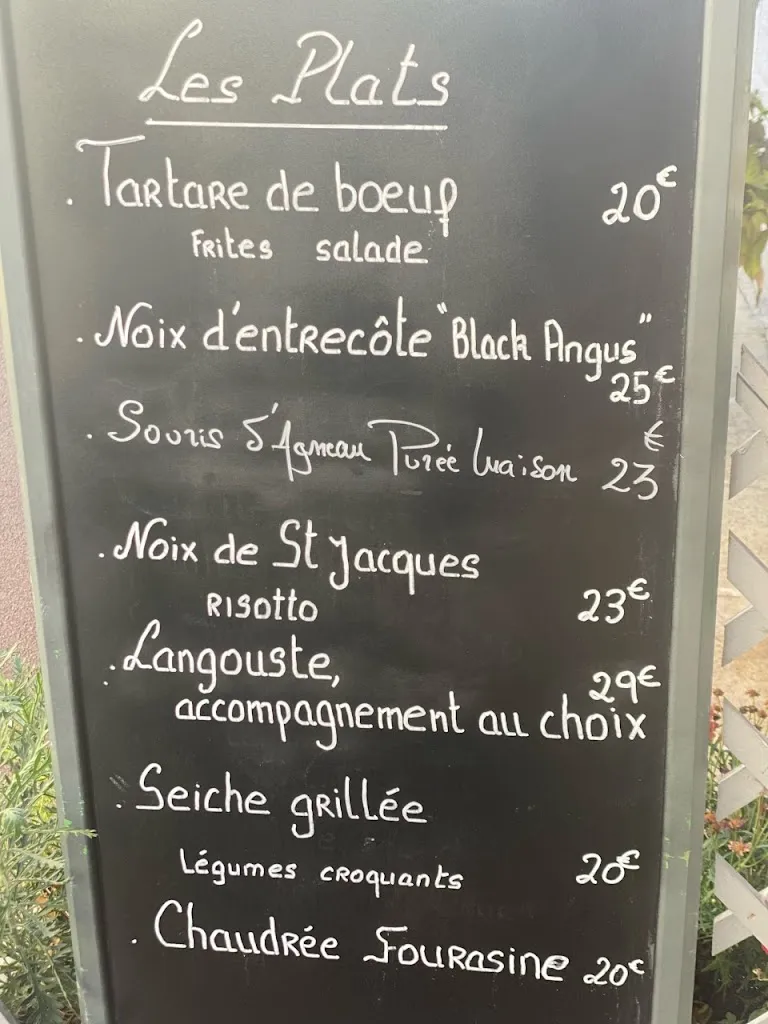 Les Plats
. Tartare de boeuf 20€
Frites salade
. Noix d'entrecôte "Black Angus"
25€
. Souris d'Agneau Purée Maison 23€
. Noix de St Jacques
Risotto 23€
. Langouste, 29€
accompagnement au choix
. Seiche grillée
Légumes croquants 20€
. Chaudrée Fourasine 20€